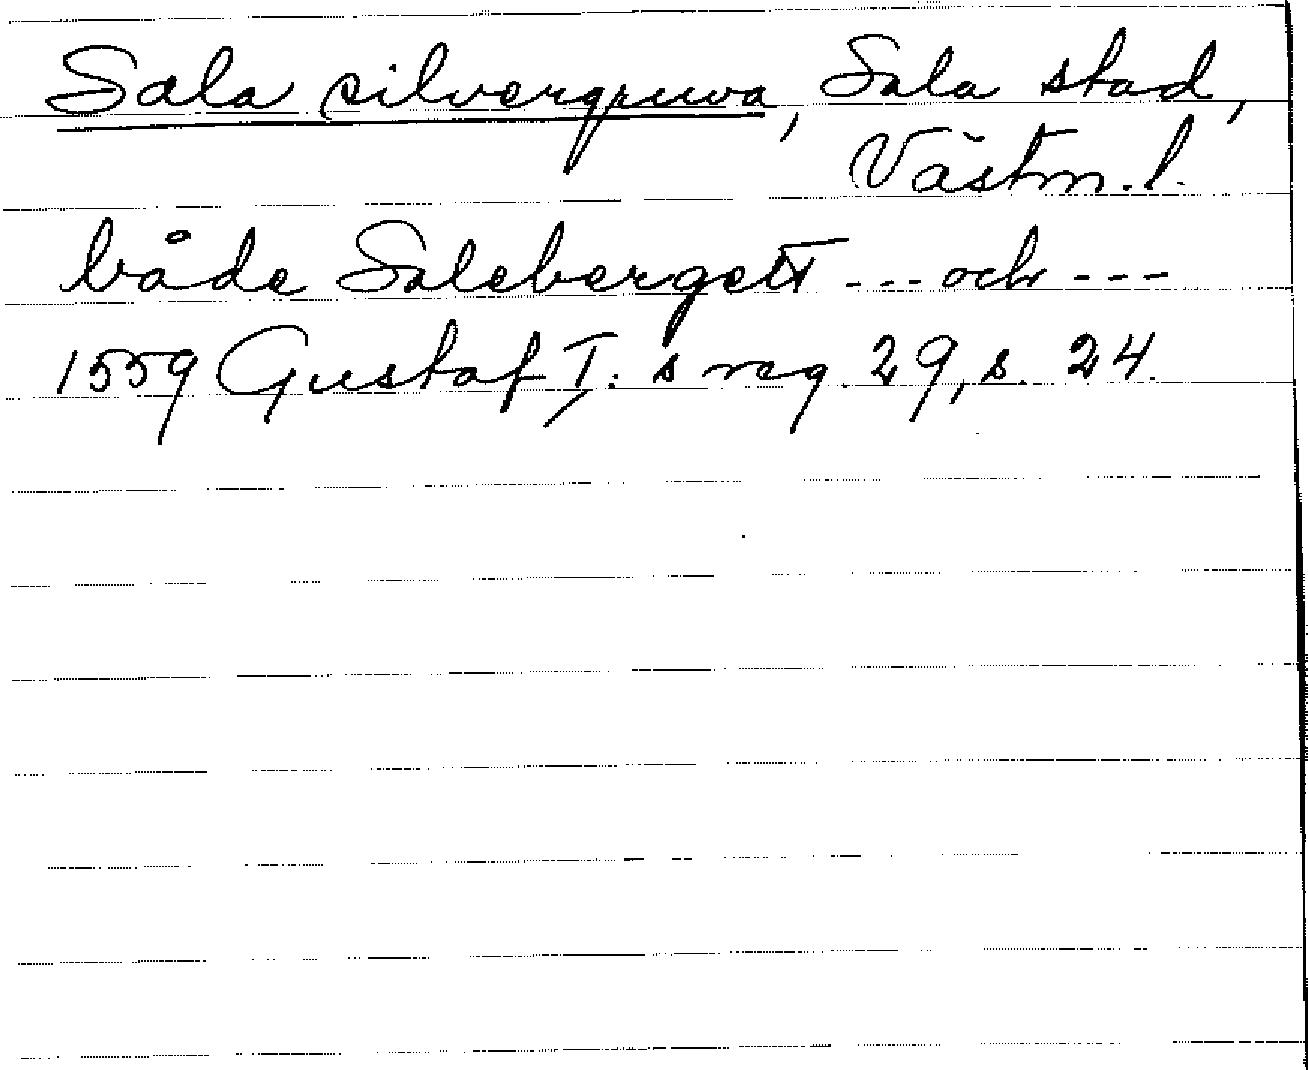 Sala silvergruva, Sala stad,
Västm. l.
både Salebergett --- och ---
1559 Gustaf I: s reg. 29, s. 24.